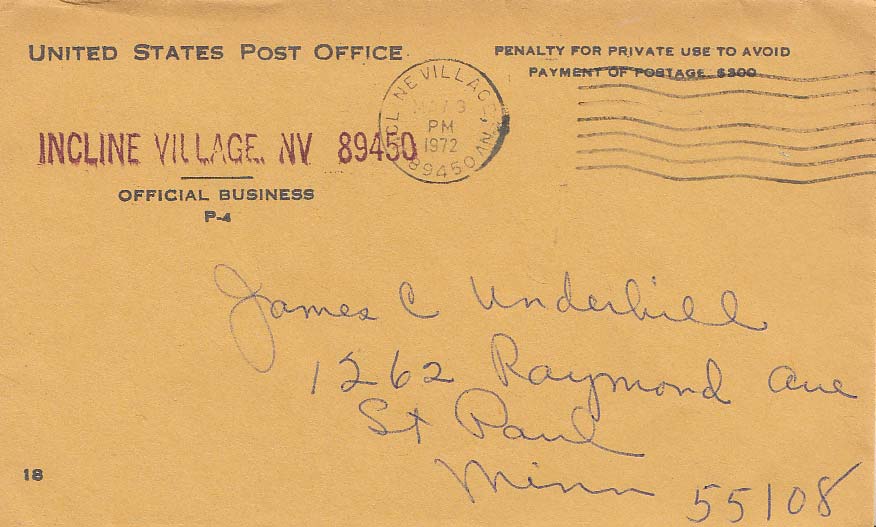 UNITED STATES POST OFFICE
PENALTY FOR PRIVATE USE TO AVOID
PAYMENT OF POSTAGE, $300
INCLINE VILLAGE, NV 89450
INCLINE VILLAGE, NV
3
PM
1972
89450
OFFICIAL BUSINESS
P-4
James C Underhill
1262 Raymond Ave
St Paul
Minn 55108
18